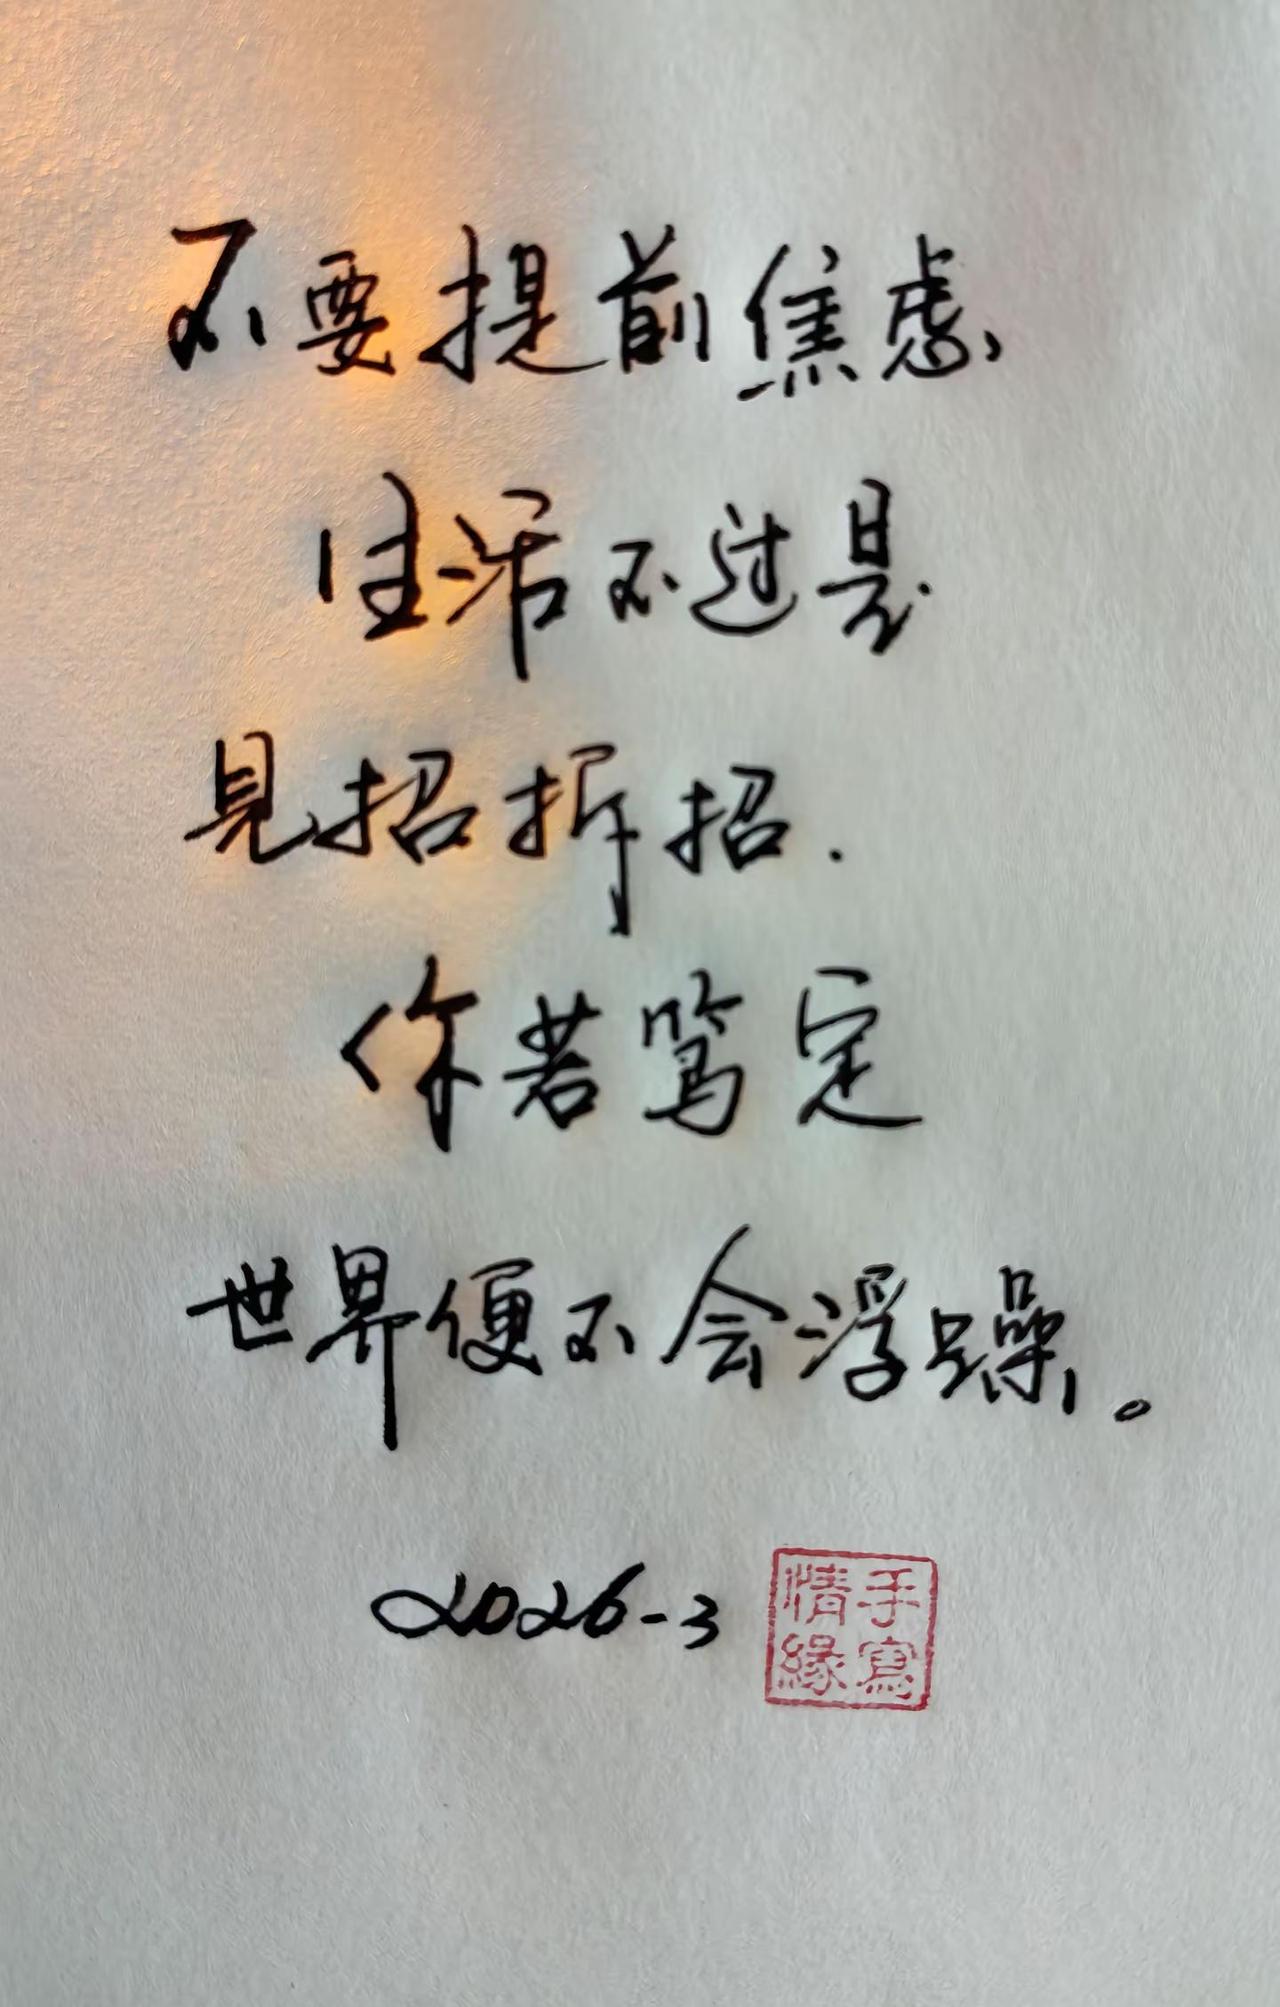 不要提前焦虑、
生活不过是
见招拆招.
你若笃定
世界便不会浮躁。
2026-3
手寫
情緣